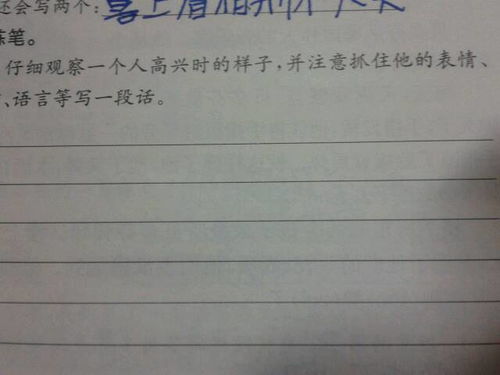 还会写两个:喜上眉梢
练笔。
仔细观察一个人高兴时的样子,并注意抓住他的表情、
、语言等写一段话。